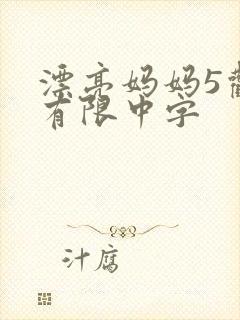 漂亮妈妈5
有限中字
汁腐